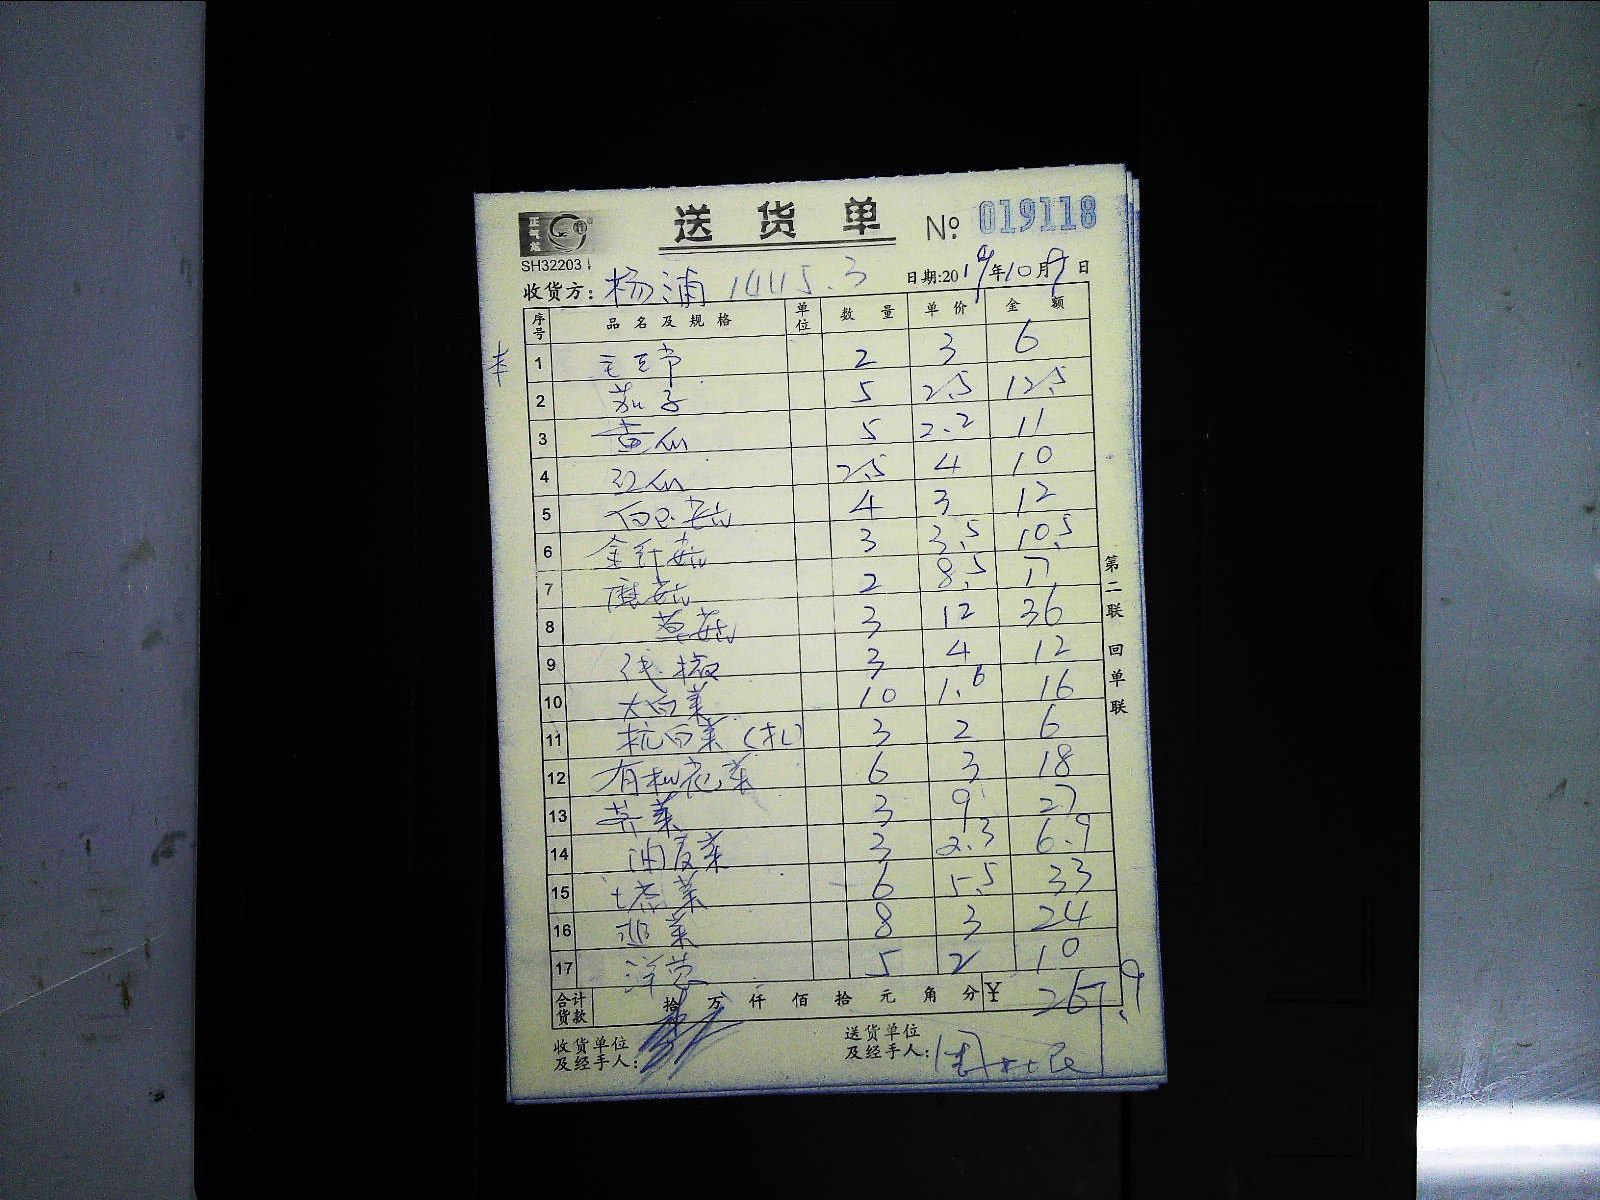 送货单 No. 019118
正气龙
SH32203
收货方：杨浦 1445.3 日期:2019年10月9日
序号 品名及规格 单位 数量 单价 金额
1 毛豆节 2 3 6
2 茄子 5 2.5 12.5
3 黄瓜 5 2.2 11
4 红瓜 2.5 4 10
5 白玉菇 4 3 12
6 金针菇 3 3.5 10.5
7 蘑菇 2 8.5 17
8 草菇 3 12 36
9 线椒 3 4 12
10 大白菜 10 1.6 16
11 杭白菜(扎) 3 2 6
12 有机花菜 6 3 18
13 荠菜 3 9 27
14 油麦菜 3 2.3 6.9
15 菜 6 5.5 33
16 菜 8 3 24
17 洋葱 5 2 10
合计货款 拾 万 仟 佰 拾 元 角 分 ¥ 267.9
收货单位及经手人：
送货单位及经手人：
第二联 回单联